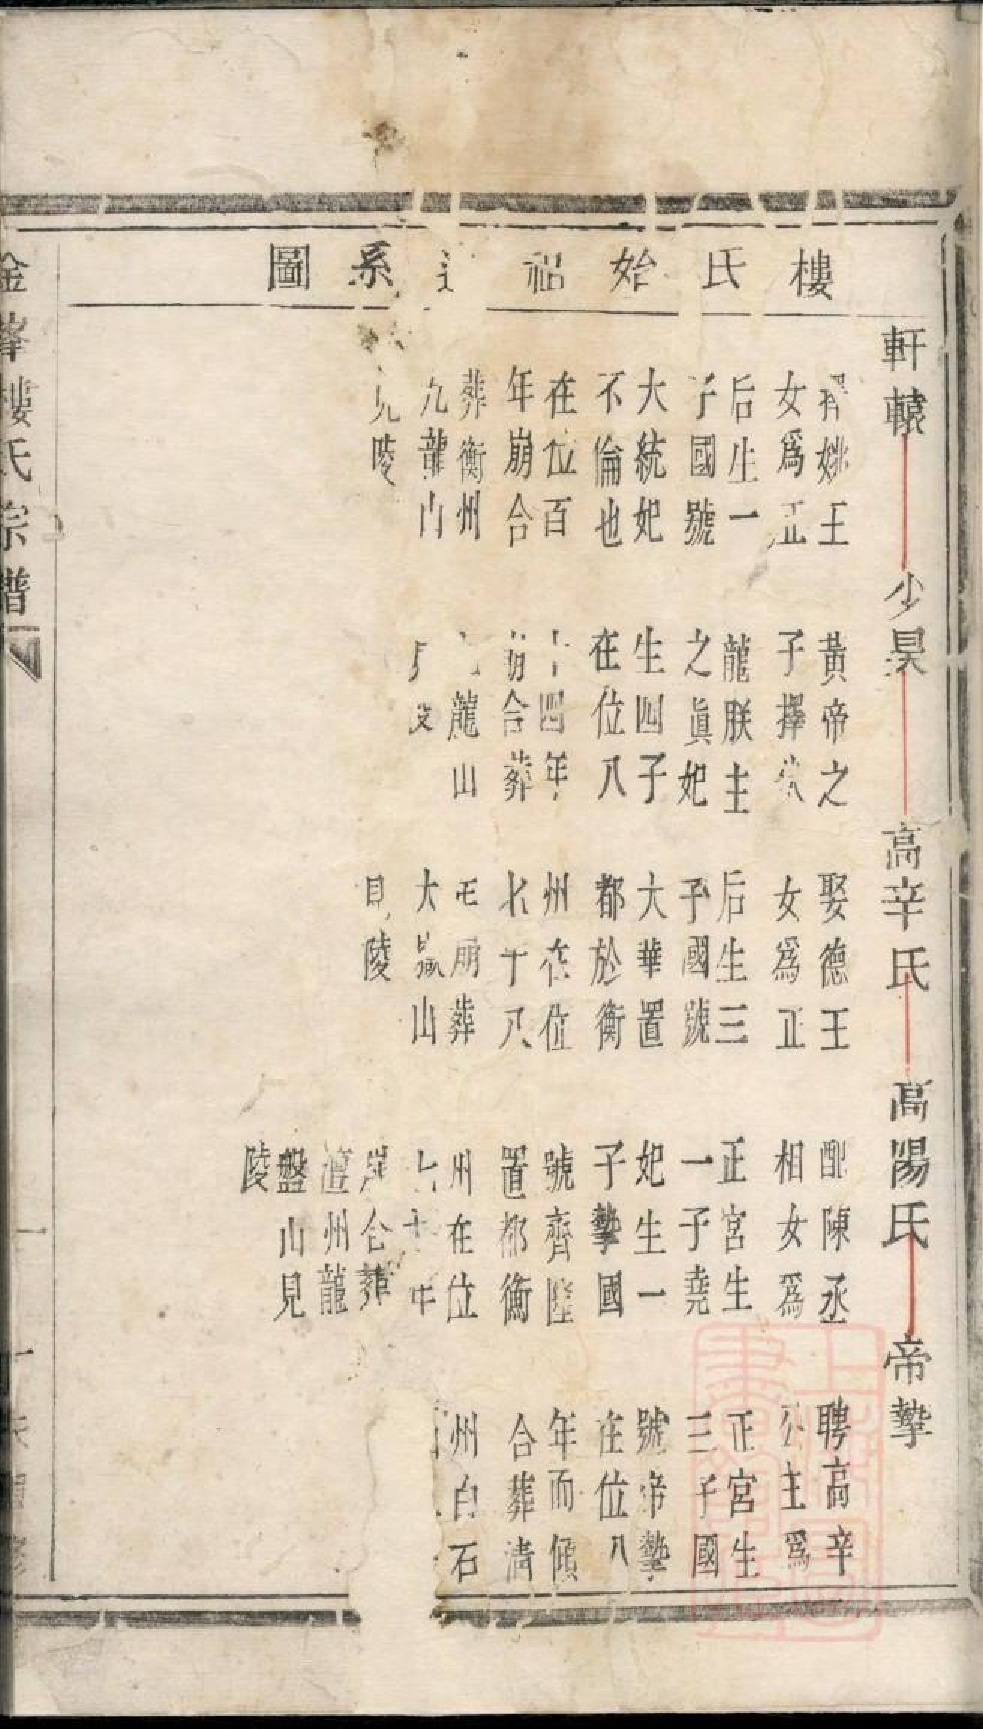 樓氏始祖系圖
軒轅
姚王
女爲正
后生一
子國號
大統妃
不倫也
在位百
年崩合
葬衡州
九龍山
見陵
少昊
黃帝之
子擇
龍朕主
之眞妃
生四子
在位八
十四年
崩合葬
龍山
高辛氏
娶德王
女爲正
后生三
子國號
大華置
都於衡
州在位
七十八
年崩葬
大山
見陵
高陽氏
配陳丞
相女爲
正宮生
一子堯
妃生一
子摯國
號齊隆
置都衡
州在位
七十年
崩合葬
澧州龍
盤山見
陵
帝摯
聘高辛
公主爲
正宮生
三子國
號帝摯
在位八
年而傾
合葬淸
州白石
金峯樓氏宗譜